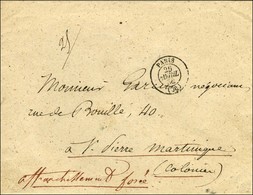 PARIS
Monsieur
négociant
rue de Bouille, 40.
à St. Pierre Martinique
(Colonies)
affranchissement forcé